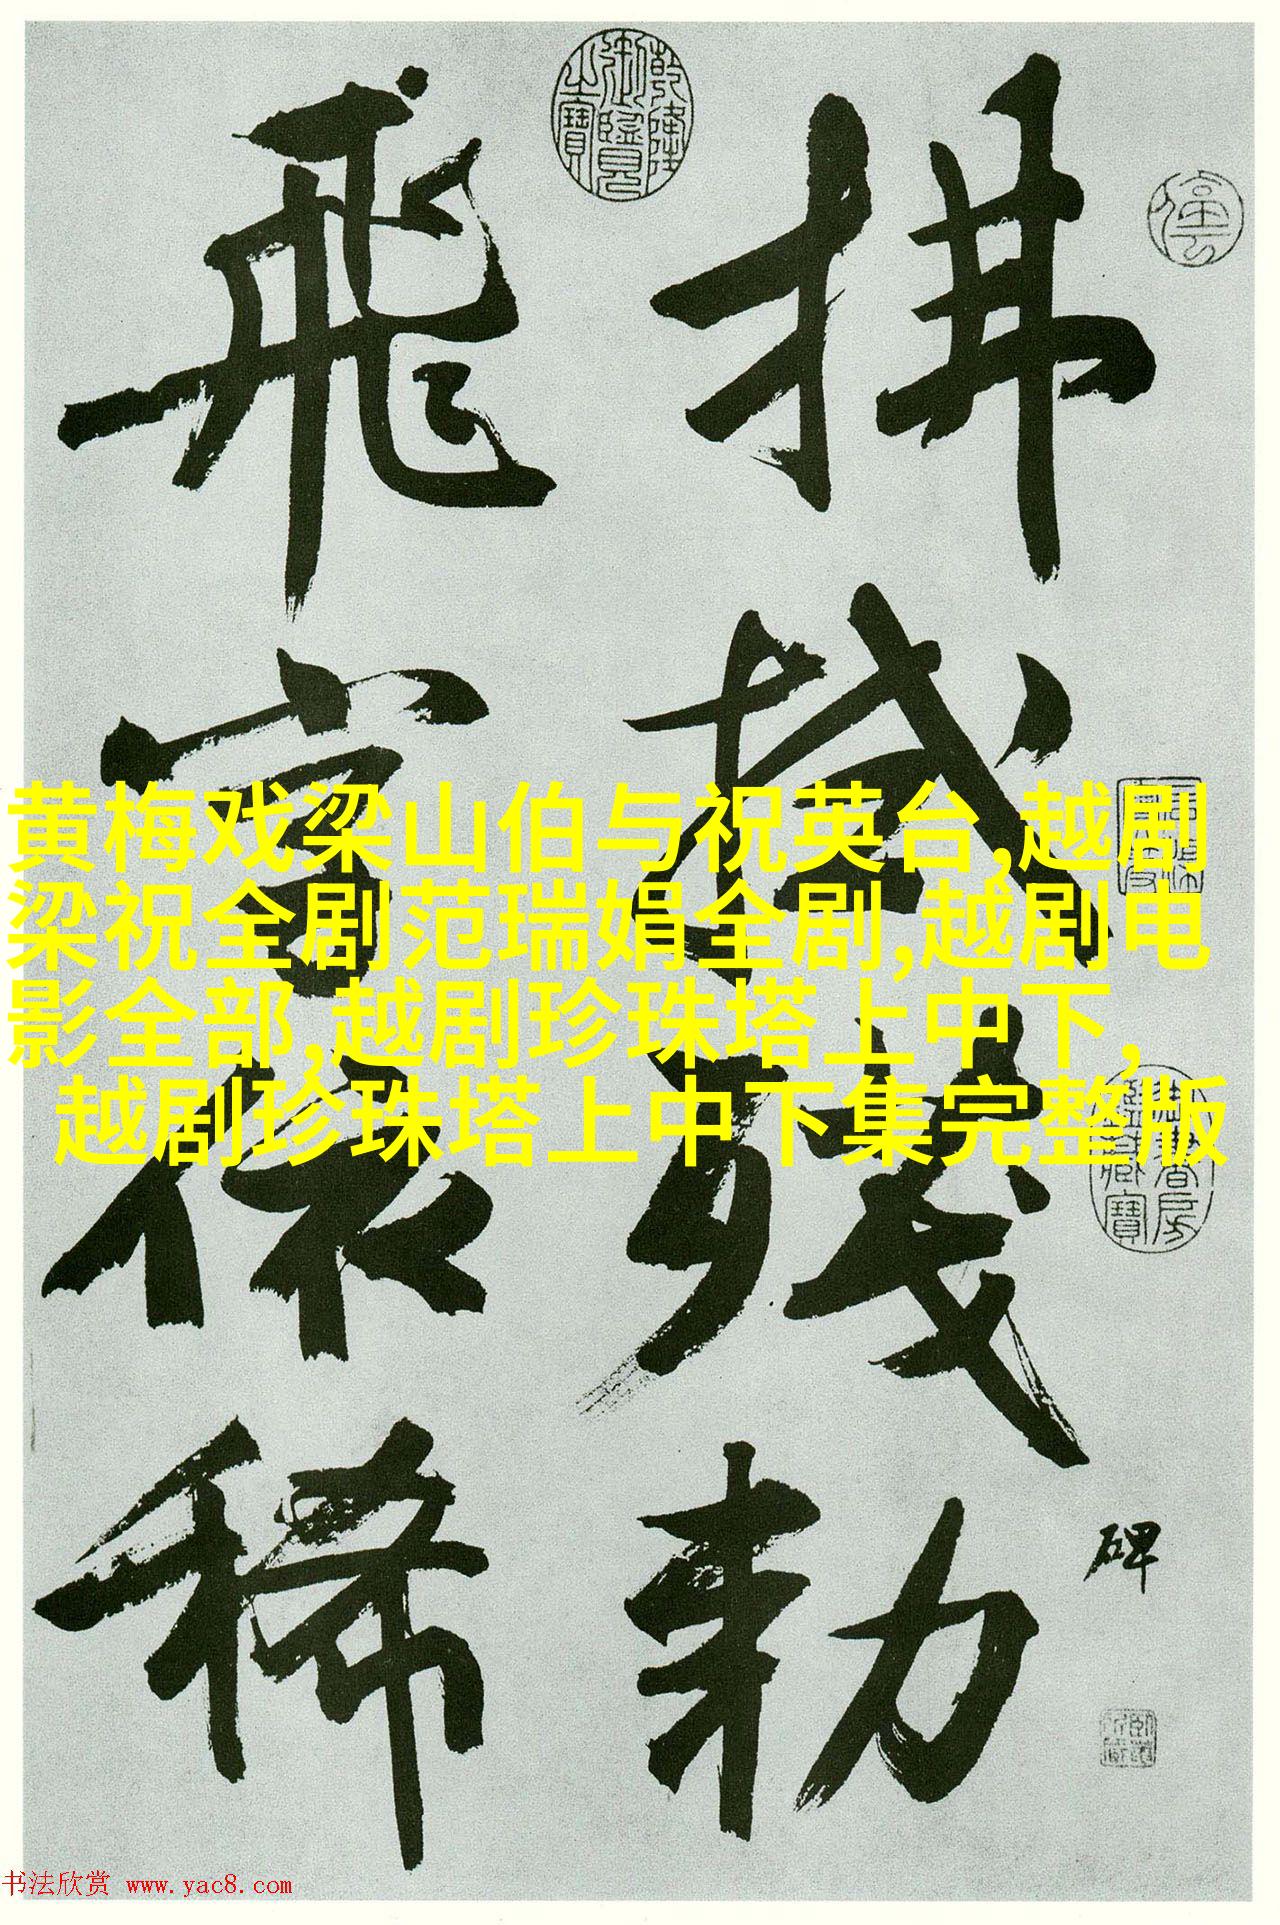 停雲
拂拭殘勅
碑
乾隆御覽之寶
飛字依稀
黄梅戏梁山伯与祝英台,越剧
梁祝全剧范瑞娟全剧,越剧电
影全部,越剧珍珠塔上中下,
越剧珍珠塔上中下集完整版
书法欣赏 www.yac8.com